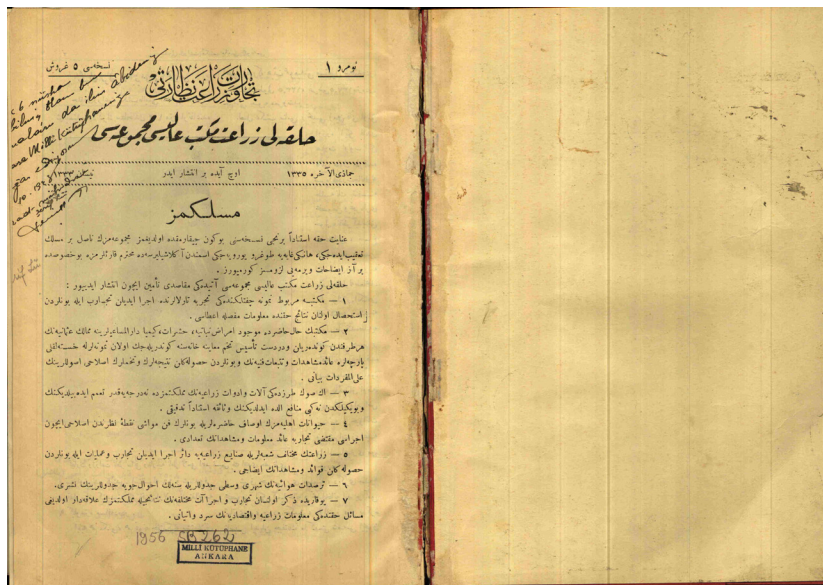 نومرو ١
نسخه‌سی ٥ غروش
تجارت و زراعت نظارتی
حلقه‌لی زراعت مکتب عالیسی مجموعه‌سی
جمادی‌الآخره ١٣٣٥
اوچ آیده بر انتشار ایدر
نیسان ١٣٣٣
مسلکمز
عنایت حقه استناداً برنجی نسخه‌سنی بوکون چیقارمقده اولدیغمز مجموعه‌مزك ناصل بر مسلك
تعقیب ایده‌جکی، هانکی غایه‌یه طوغرو یورویه‌جکی اسمندن آکلاشیلیرسه‌ده محترم قارئلرمزه بو خصوصده
بر آز ایضاحات ویرمه‌یی لزومسز کورمیورز .
حلقه‌لی زراعت مکتب عالیسی مجموعه‌سی آتیده‌کی مقاصدی تأمین ایچون انتشار ایدییور :
١ — مکتبه مربوط نمونه چفتلکنده‌کی تجربه تارلالرنده اجرا ایدیلن تجارب ایله بونلردن
استحصال اولنان نتائج حقنده معلومات مفصله اعطاسی .
٢ — مکتبك حال حاضرده موجود امراض نباتیه، حشرات، کیمیا دارالمساعیلرینه ممالك عثمانیه‌نك
هر طرفندن کوندریلن ودردست تأسیس تخم معاینه خانه‌سنه کوندریله‌جك اولان نمونه‌لرله خسته‌لقلی
پارچه‌لره عائد مشاهدات و تتبعات فنیه‌نك و بونلردن حصوله کلن نتیجه‌لرك وتخملرك اصلاحی اصوللرینك
علی المفردات بیانی .
٣ — اك صوك طرزده‌کی آلات وادوات زراعیه‌نك مملکتمزده نه‌درجه‌یه‌قدر تعمم ایده‌بیلدیکنك
و بویکیلکدن نه کبی منافع الده ایدلدیکنك وثائقه استناداً تدقیقی .
٤ — حیوانات اهلیه‌مزك اوصاف حاضره‌لریله بونلرك فن مواشی نقطهٔ نظرندن اصلاحی ایچون
اجراسی مقتضی تجاربه عائد معلومات ومشاهداتك تعدادی .
٥ — زراعتك مختلف شعبه‌لریله صنایع زراعیه‌یه دائر اجرا ایدیلن تجارب وعملیات ایله بونلردن
حصوله کلن فوائد ومشاهداتك ایضاحی .
٦ — ترصدات هوائیه‌نك شهری وسطی جدوللریله سنه‌لك احوال جویه جدوللرینك نشری .
٧ — یوقاریده ذکر اولنان تجارب و اجراآت مختلفه‌نك نتایجیله مملکتمزك علاقه‌دار اولدیغی
مسائل حقنده‌کی معلومات زراعیه واقتصادیه‌نك سرد واتیانی .
1956 SB 262
MİLLÎ KÜTÜPHANE
ANKARA